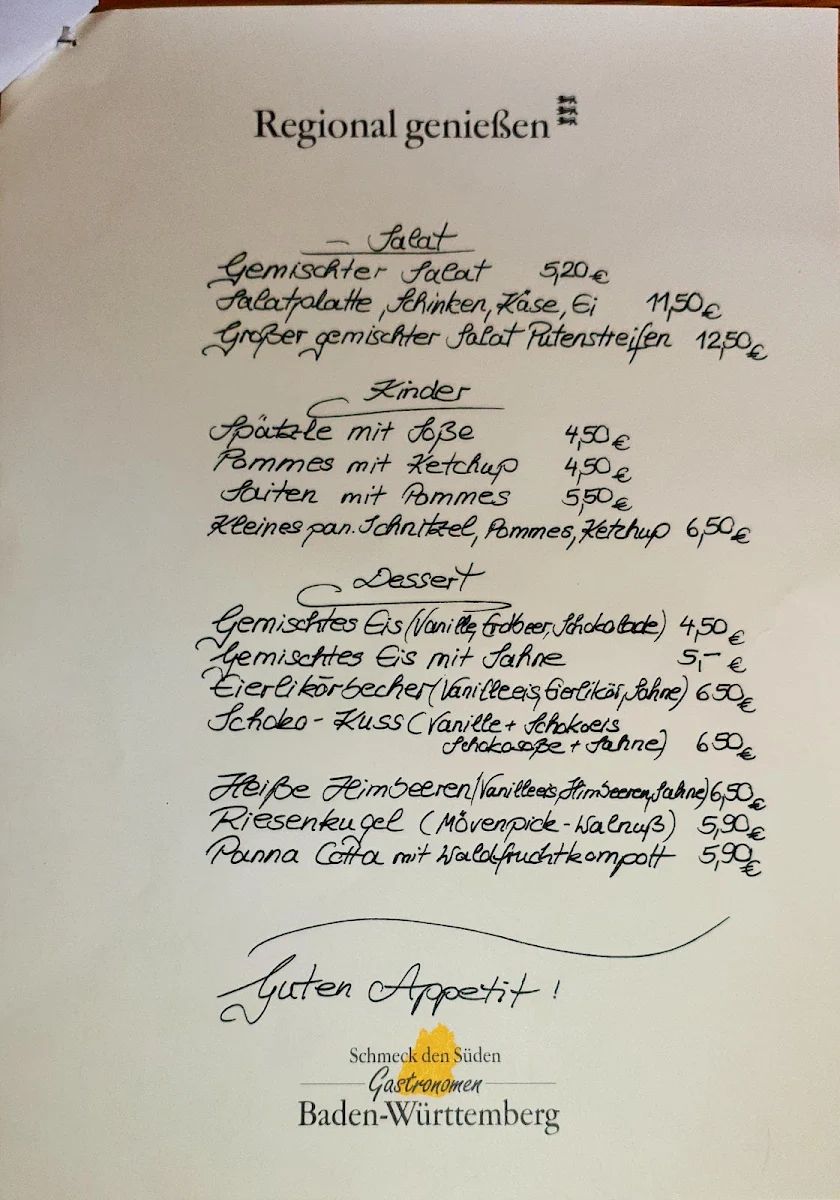 Regional genießen
- Salat
Gemischter Salat 5,20 €
Salatplatte, Schinken, Käse, Ei 11,50 €
Großer gemischter Salat Putenstreifen 12,50 €
Kinder
Spätzle mit Soße 4,50 €
Pommes mit Ketchup 4,50 €
Saiten mit Pommes 5,50 €
Kleines pan. Schnitzel, Pommes, Ketchup 6,50 €
Dessert
Gemischtes Eis (Vanille, Erdbeer, Schokolade) 4,50 €
Gemischtes Eis mit Sahne 5,- €
Eierlikörbecher (Vanilleeis, Eierlikör, Sahne) 6.50 €
Schoko-Kuss (Vanille + Schokoeis
Schokosoße + Sahne) 6.50 €
Heiße Himbeeren (Vanilleeis, Himbeeren, Sahne) 6,50 €
Riesenkugel (Mövenpick-Walnuß) 5,90 €
Panna Cotta mit Waldfruchtkompott 5,90 €
Guten Appetit!
Schmeck den Süden
Gastronomen
Baden-Württemberg